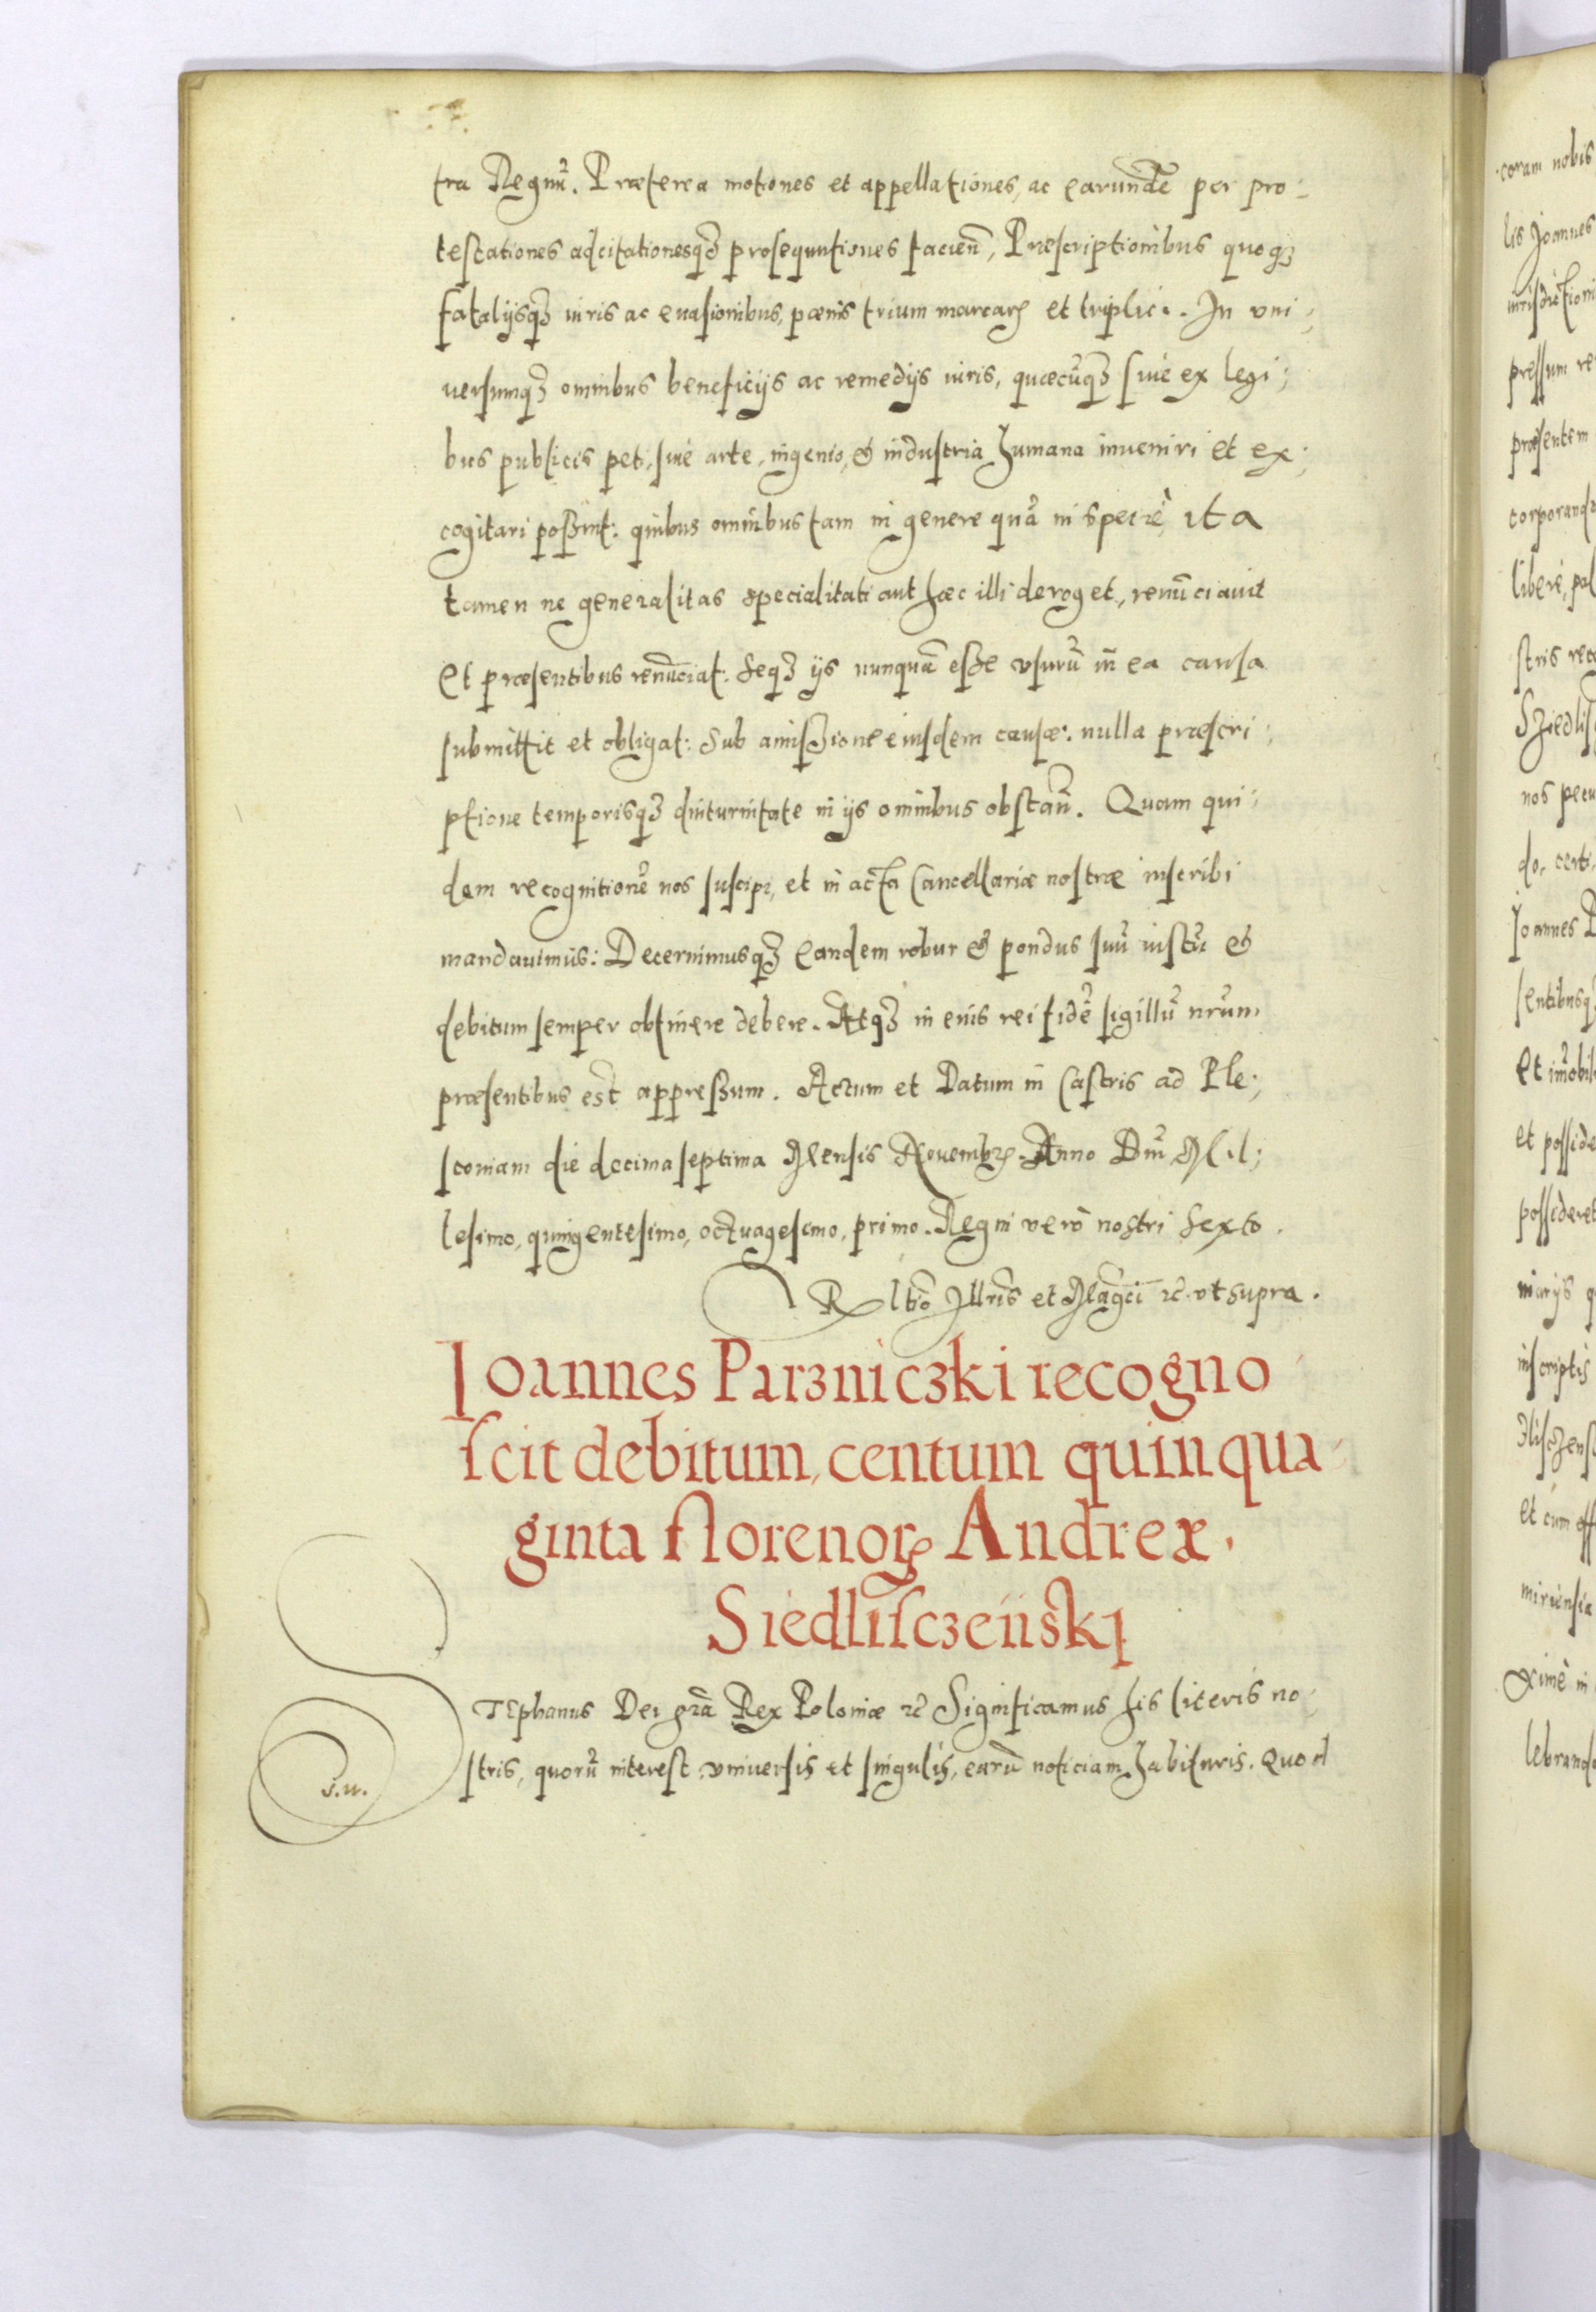 tra Regnū. Præterea motiones et appellationes, ac earundē per pro-
testationes adcitationesqʒ prosequutiones facien̄, Præscriptionibus quoqʒ
fatalijsqʒ iuris ac euasionibus, pœnis trium marcarꝝ et triplici. In vni-
uersumqʒ omnibus beneficijs ac remedijs iuris, quæcūqʒ siue ex legi-
bus publicis peti, siue arte, ingenio, & industria humana inueniri et ex-
cogitari possint: quibus omnibus tam in genere quā in specie, ita
tamen ne generalitas specialitati aut hæc illi deroget, renūciauit
Et præsentibus renūciat: seqʒ ijs nunquā esse vsurū in ea causa
submittit et obligat: Sub amissione eiusdem causæ: nulla præscri-
ptione temporisqʒ diuturnitate in ijs omnibus obstan̄. Quam qui-
dem recognitionē nos suscipi, et in acta Cancellariæ nostræ inscribi
mandauimus: Decernimusqʒ Eandem robur & pondus suū iustū &
debitum semper obtinere debere. Atqʒ in eius rei fidē sigillū nrūm
præsentibus est appressum. Actum et Datum in Castris ad Ple-
scouiam die decima septima Mensis Nouembrꝭ. Anno Dn̄i Mil-
lesimo, quingentesimo, octuagesimo, primo. Regni verò nostri Sexto.
Rltīo Illris et Magci ꝛc vt supra.
Ioannes Parzniczki recogno-
scit debitum, centum quinqua-
ginta florenorꝝ Andreæ
Siedlisczeński
STEphanus Dei gra Rex Poloniæ ꝛc Significamus his literis no-
stris, quorū interest vniuersis et singulis, earū noticiam habituris. Quod
coram nobis
lis Joannes
iurisdictioni
pressum re
præsentem
corporand
liberè, pal
stris reco
Sziedlis
nos pecu
do, certi
Joannes P
sentibusqʒ
Et im̄obil
et posside
possideret
niarijs q
inscriptis
et cum
mirien
lebrand